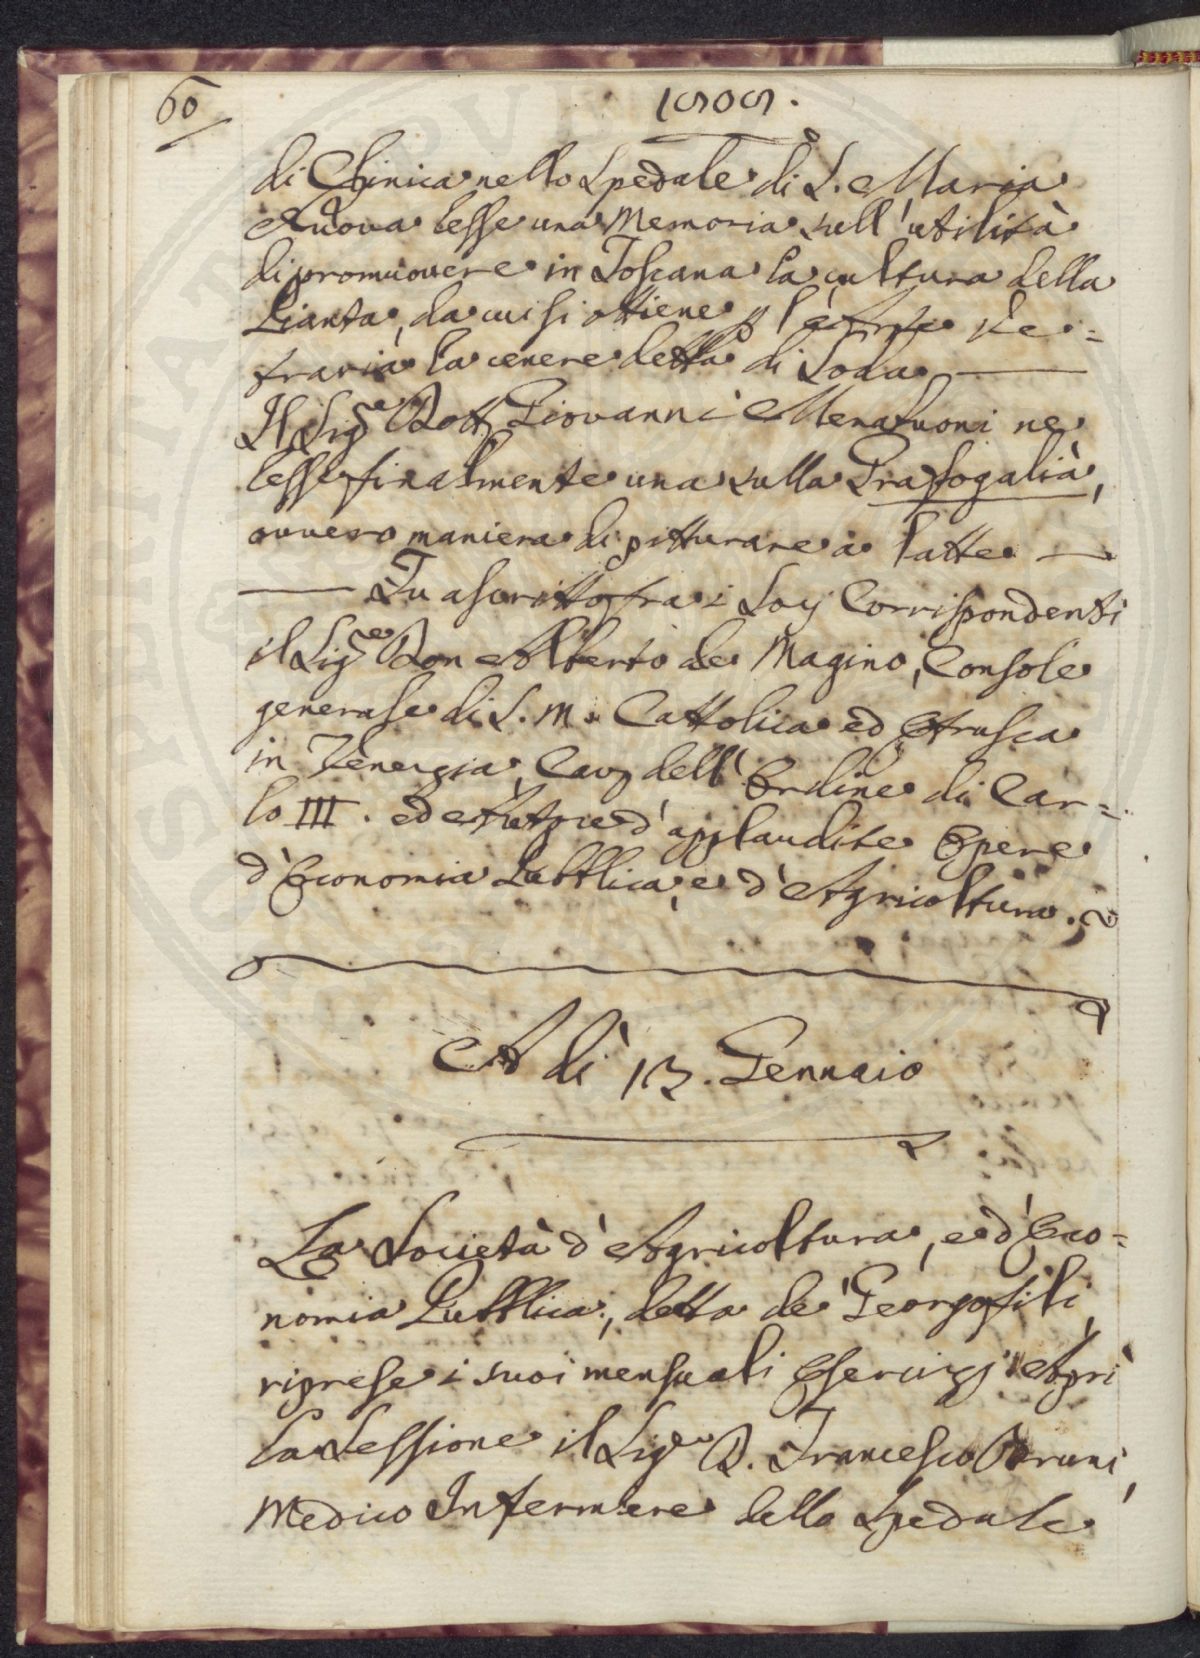 60
1808.
di Clinica nello Spedale di S. Maria
Nuova lesse una Memoria sull'utilità
di promuovere in Toscana la cultura della
Pianta, da cui si ottiene p l'Arte Ve=
traria la cenere detta di Soda
Il Sig.e Dott. Giovanni Menabuoni ne
lesse finalmente una sulla Grafogalià,
ovvero maniera di pitturare a latte
Fu ascritto fra i Socj Corrispondenti
il Sig.e Don Alberto de Magino, Console
generale di S. M. Cattolica ed Etrusca
in Venezia, Cav. dell'Ordine di Car=
lo III. ed Autore d'applaudite Opere
d'Economia Pubblica, e d'Agricoltura.
A dì 13. Gennaio
La Società d'Agricoltura, e d'Eco=
nomia Pubblica, detta de' Georgofili,
riprese i suoi mensuali Esercizj. Aprì
la Sessione il Sig.e D. Francesco Bruni,
Medico Infermiere dello Spedale